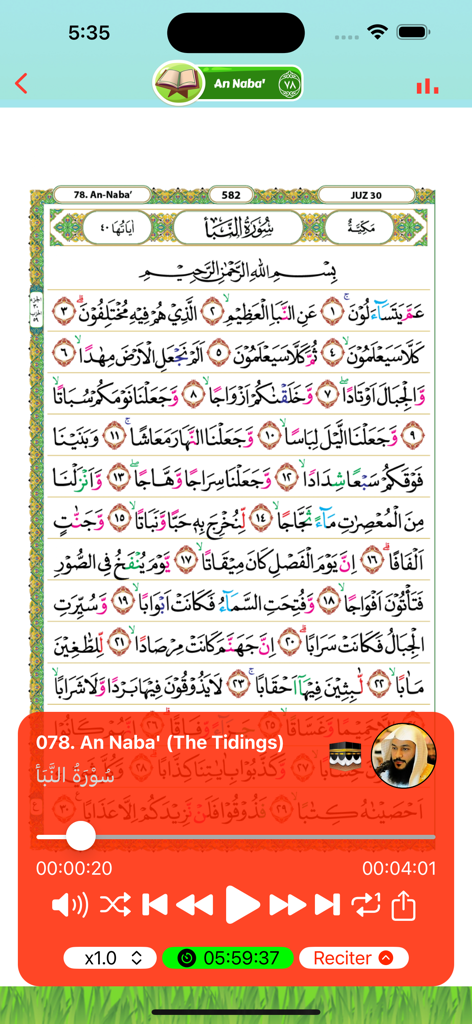 5:35
An Naba'
٧٨
78. An-Naba'
582
JUZ 30
اٰيَاتُهَا ٤٠
سُوْرَةُ النَّبَأِ
مَكِيَّةٌ
بِسْمِ اللّٰهِ الرَّحْمٰنِ الرَّحِيْمِ
عَمَّ يَتَسَآءَلُوْنَ ۚ ١ عَنِ النَّبَاِ الْعَظِيْمِ ۙ ٢ الَّذِيْ هُمْ فِيْهِ مُخْتَلِفُوْنَ ۗ ٣
كَلَّا سَيَعْلَمُوْنَ ۙ ٤ ثُمَّ كَلَّا سَيَعْلَمُوْنَ ٥ اَلَمْ نَجْعَلِ الْاَرْضَ مِهٰدًا ۙ ٦
وَّالْجِبَالَ اَوْتَادًا ۖ ٧ وَّخَلَقْنٰكُمْ اَزْوَاجًا ۙ ٨ وَّجَعَلْنَا نَوْمَكُمْ سُبَاتًا ۙ
٩ وَّجَعَلْنَا الَّيْلَ لِبَاسًا ۙ ١٠ وَّجَعَلْنَا النَّهَارَ مَعَاشًا ۚ ١١ وَبَنَيْنَا
فَوْقَكُمْ سَبْعًا شِدَادًا ۙ ١٢ وَّجَعَلْنَا سِرَاجًا وَّهَّاجًا ۖ ١٣ وَّاَنْزَلْنَا
مِنَ الْمُعْصِرٰتِ مَآءً ثَجَّاجًا ۙ ١٤ لِّنُخْرِجَ بِهٖ حَبًّا وَّنَبَاتًا ۙ ١٥ وَّجَنّٰتٍ
اَلْفَافًا ۗ ١٦ اِنَّ يَوْمَ الْفَصْلِ كَانَ مِيْقَاتًا ۙ ١٧ يَّوْمَ يُنْفَخُ فِى الصُّوْرِ
فَتَأْتُوْنَ اَفْوَاجًا ۙ ١٨ وَّفُتِحَتِ السَّمَآءُ فَكَانَتْ اَبْوَابًا ۙ ١٩ وَّسُيِّرَتِ
الْجِبَالُ فَكَانَتْ سَرَابًا ۗ ٢٠ اِنَّ جَهَنَّمَ كَانَتْ مِرْصَادًا ۙ ٢١ لِّلطّٰغِيْنَ
مَاٰبًا ۙ ٢٢ لّٰبِثِيْنَ فِيْهَآ اَحْقَابًا ۚ ٢٣ لَا يَذُوْقُوْنَ فِيْهَا بَرْدًا وَّلَا شَرَابًا ۙ
078. An Naba' (The Tidings)
سُوْرَةُ النَّبَأِ
اَحْصَيْنٰهُ كِتٰبًا ۙ ٢٩ فَذُوْقُوْا فَلَنْ نَّزِيْدَكُمْ اِلَّا عَذَابًا ٣٠
00:00:20
00:04:01
x1.0
05:59:37
Reciter